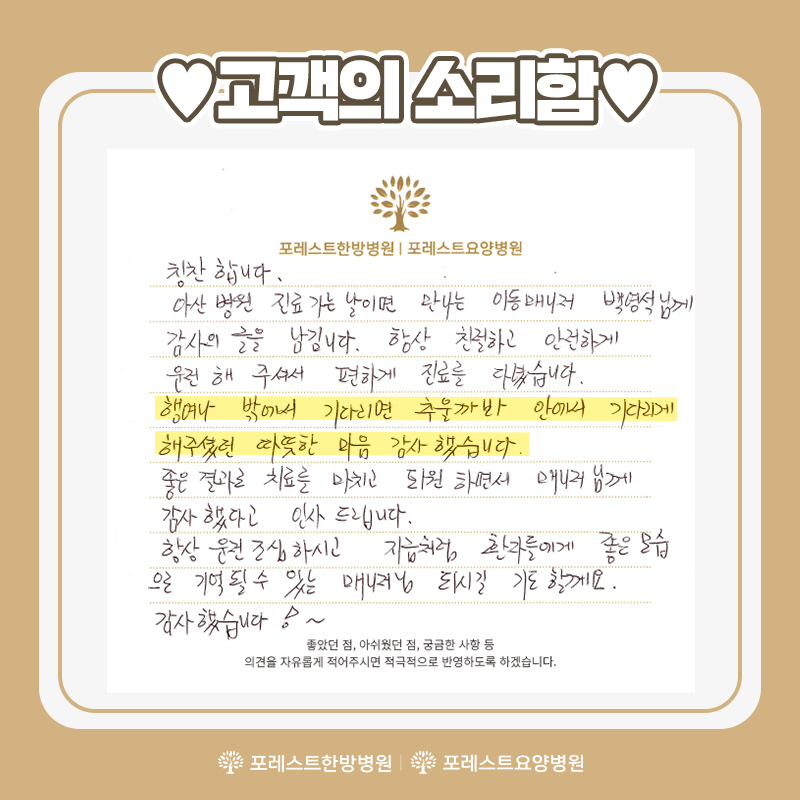 ♥고객의 소리함♥
포레스트한방병원 | 포레스트요양병원
칭찬 합니다.
아산 병원 진료 가는 날이면 만나는 이동매니저 백영석님께
감사의 글을 남깁니다. 항상 친절하고 안전하게
운전 해 주셔서 편하게 진료를 다녔습니다.
행여나 밖에서 기다리면 추울까봐 안에서 기다리게
해주셨던 따뜻한 마음 감사했습니다.
좋은 결과로 치료를 마치고 퇴원 하면서 매니저님께
감사했다고 인사 드립니다.
항상 운전 조심 하시고 지금처럼 환자들에게 좋은 모습
으로 기억될 수 있는 매니저님 되시길 기도 할게요.
감사했습니다 ! ~
좋았던 점, 아쉬웠던 점, 궁금한 사항 등
의견을 자유롭게 적어주시면 적극적으로 반영하도록 하겠습니다.
포레스트한방병원 | 포레스트요양병원